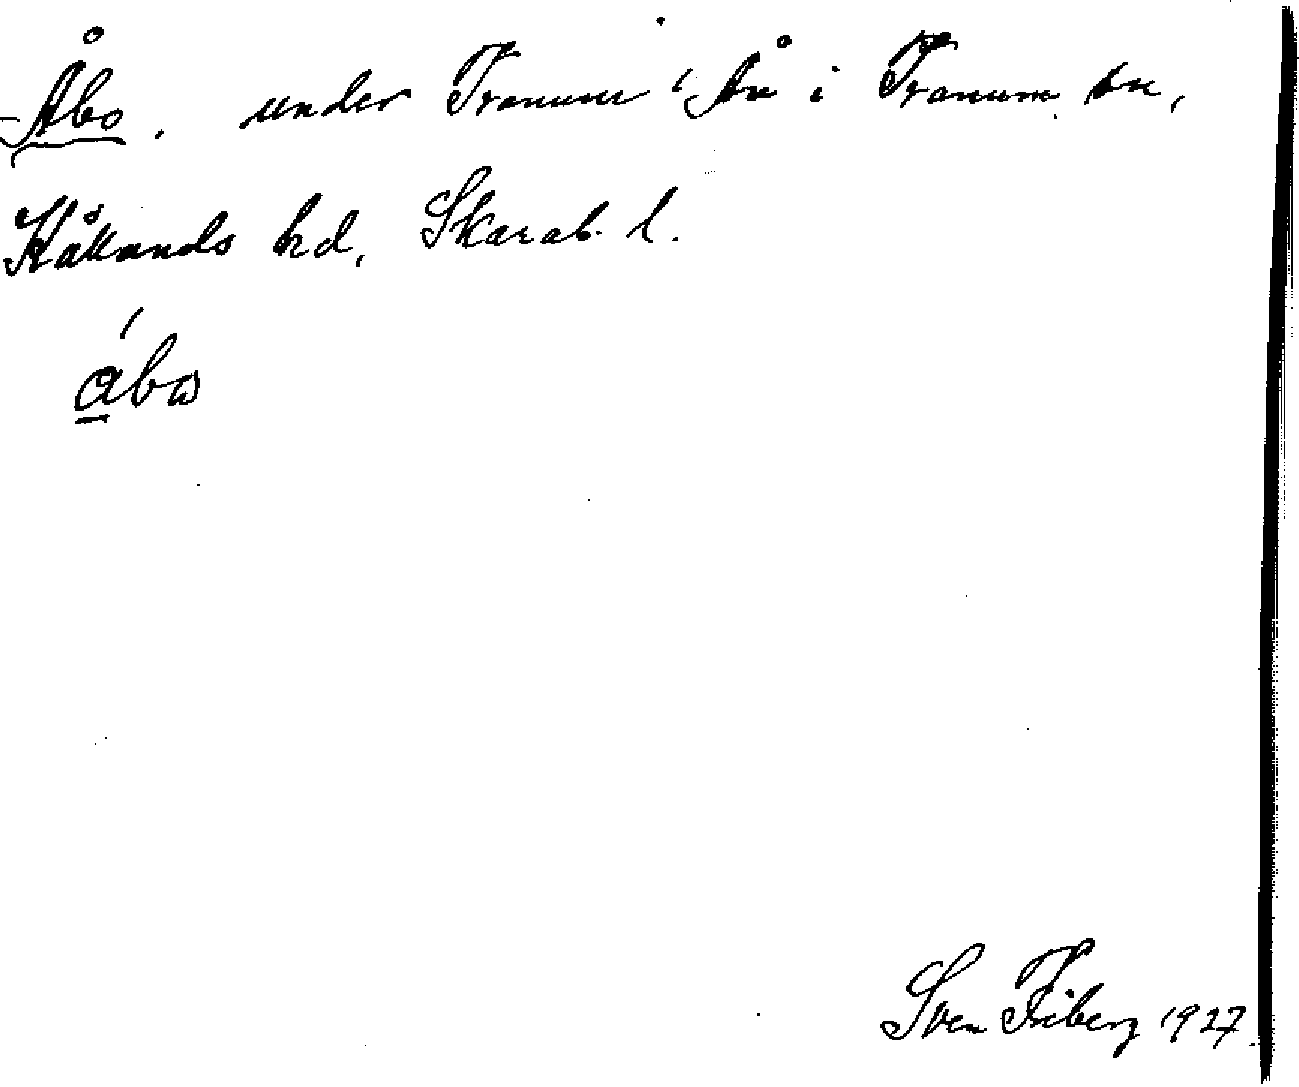 Åbo. under Tranum i Ån i Tranum sn,
Kållands hd, Skarab. l.
ábω
Sven Friberg 1927